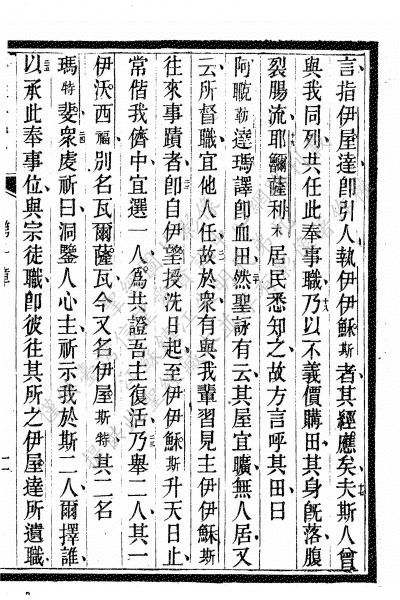 言指伊屋達卽引人執伊伊穌斯者其經應矣夫斯人曾
與我同列共任此奉事職乃以不義價購田其身旣落腹
裂腸流耶爾薩利木居民悉知之故方言呼其田曰
阿勒達瑪譯卽血田然聖詠有云其屋宜曠無人居又
云所督職宜他人任故於衆有與我輩習見主伊伊穌斯
往來事蹟者卽自伊望授洗日起至伊伊穌斯升天日止
常偕我儕中宜選一人爲共證吾主復活乃舉二人其一
伊沃西福別名瓦爾薩瓦今又名伊屋斯特其二名
瑪特斐衆虔祈曰洞鑒人心主祈示我於斯二人爾擇誰
以承此奉事位與宗徒職卽彼往其所之伊屋達所遺職
第一章
二